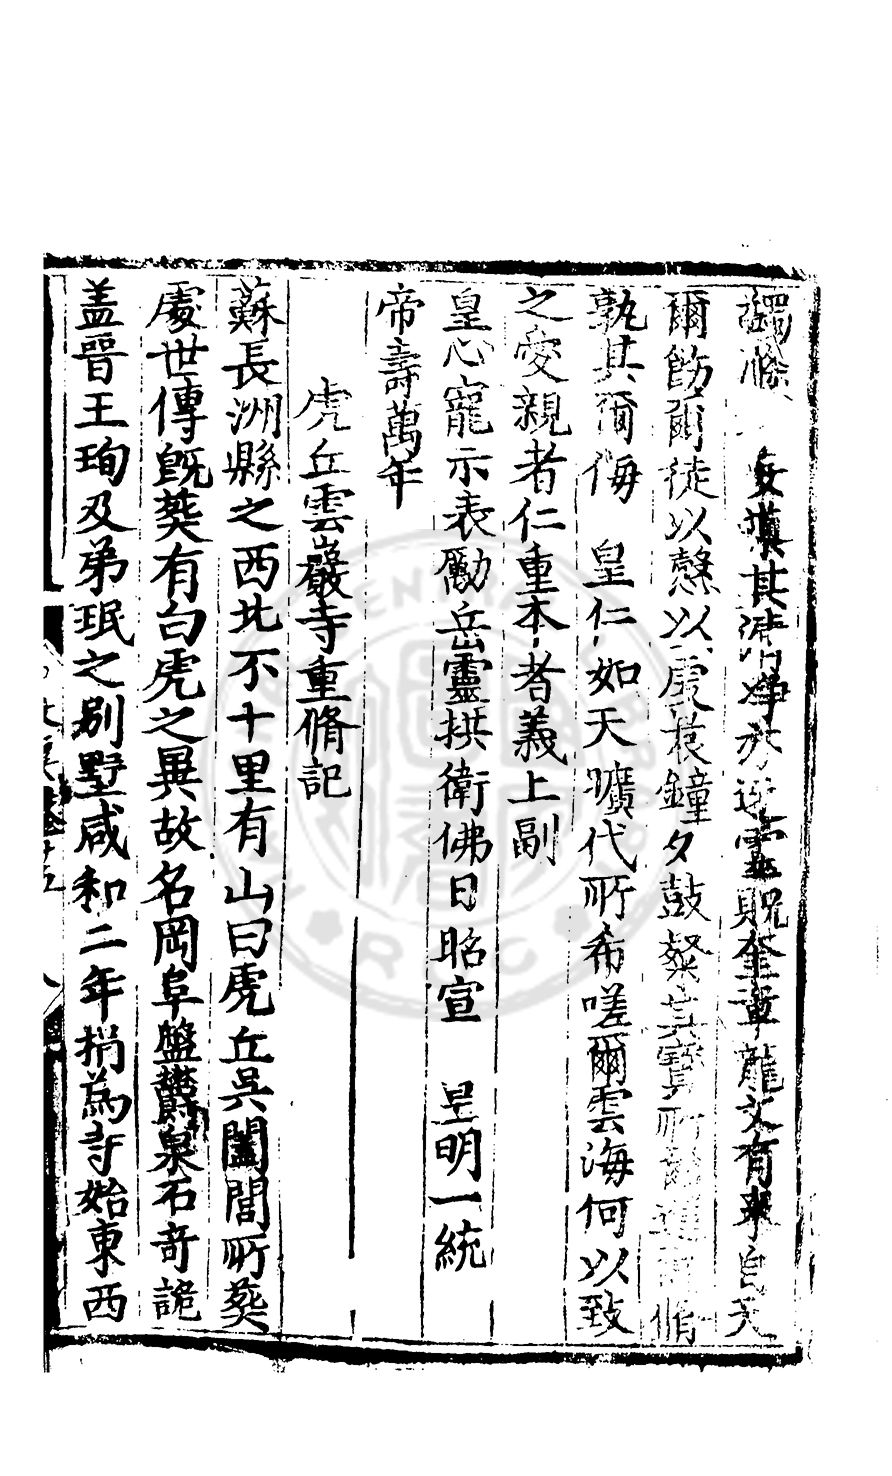 蠲滌 其清淨 奎章龍文有來自天
爾飭爾徒以慤以虔晨鐘夕鼓 其寶所 進 脩
孰其爾侮 皇仁如天曠代所希嗟爾雲海何以致
之愛親者仁重本者義上副
皇心寵示表勵岳靈拱衛佛日昭宣 皇明一統
帝壽萬年
虎丘雲巖寺重脩記
蘇長洲縣之西北不十里有山曰虎丘吳闔閭所葬
處世傳旣葬有白虎之異故名岡阜盤鬱泉石奇詭
盖晉王珣及弟珉之別墅咸和二年捐為寺始東西